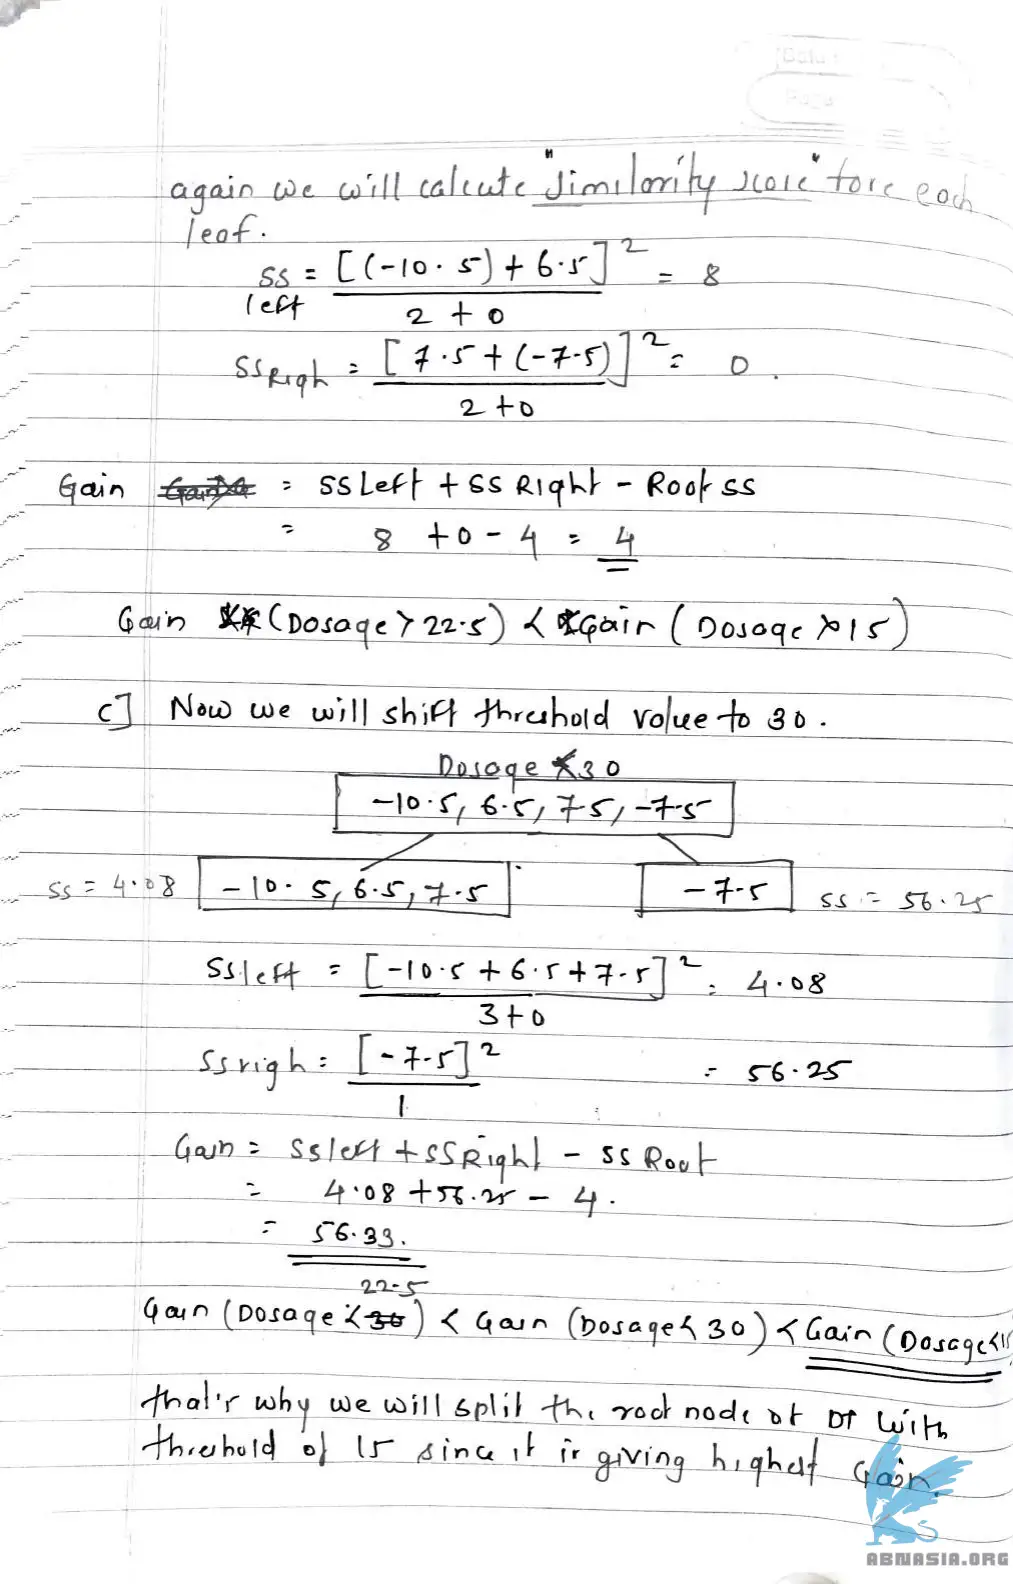 again we will calcute "similarity score" fore each
leaf.
SS left = [(-10.5) + 6.5]² / 2 + 0 = 8
SS Righ = [7.5 + (-7.5)]² / 2 + 0 = 0.
Gain = SS Left + SS Right - Root SS
= 8 + 0 - 4 = 4
Gain (Dosage > 22.5) < Gain (Dosage > 15)
c] Now we will shift threshold value to 30.
Dosage < 30
-10.5, 6.5, 7.5, -7.5
SS = 4.08 -10.5, 6.5, 7.5 -7.5 SS = 56.25
SS left = [-10.5 + 6.5 + 7.5]² / 3 + 0 = 4.08
SS righ = [-7.5]² / 1 = 56.25
Gain = SS left + SS Right - SS Root
= 4.08 + 56.25 - 4.
= 56.33.
22.5
Gain (Dosage < 30) < Gain (Dosage < 30) < Gain (Dosage < 15
that's why we will split the root node of DT with
threshold of 15 since it is giving highest Gain.
ABNASIA.ORG